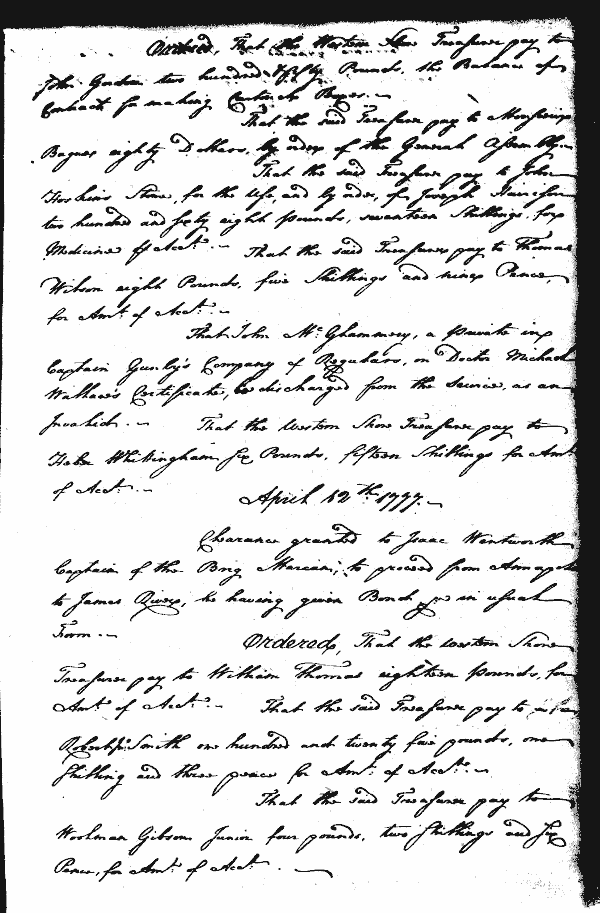 Ordered, That the Western Shore Treasurer pay to
John Gordon two hundred & fifty Pounds, the Balance of
Contract for making Cartouch Boxes. —
That the said Treasurer pay to Monsieur
Baques eighty Dollars, by order of the General Assembly. —
That the said Treasurer pay to John
Hoskins Stone, for the Use, and by order, of Joseph
two hundred and sixty eight pounds, seventeen Shillings, for
Medicine ⅌ Acct. — That the said Treasurer pay to Thomas
Wilson eight Pounds, five Shillings and nine Pence,
for Amt. of Acct. —
That John McGhammery, a private in
Captain Gunby's Company of Regulars, on Doctor Michael
Wallace's Certificate, be discharged from the Service, as an
Invalid. — That the western Shore Treasurer pay to
Heber Whittingham six Pounds, fifteen Shillings for Amt
of Acct. —
April 12th 1777. —
Clearance granted to Isaac Wentworth
Captain of the Brig Marian, to proceed from Annapolis
to James River, he having given Bond in usual
Form. —
Ordered, That the western Shore
Treasurer pay to William Thomas eighteen pounds, for
Amt of Acct. — That the said Treasurer pay to
Robert Smith one hundred and twenty five pounds, one
Shilling and three pence for Amt. of Acct. —
That the said Treasurer pay to
Woolman Gibson Junior four pounds, two Shillings and Six
Pence, for Amt. of Acct. —